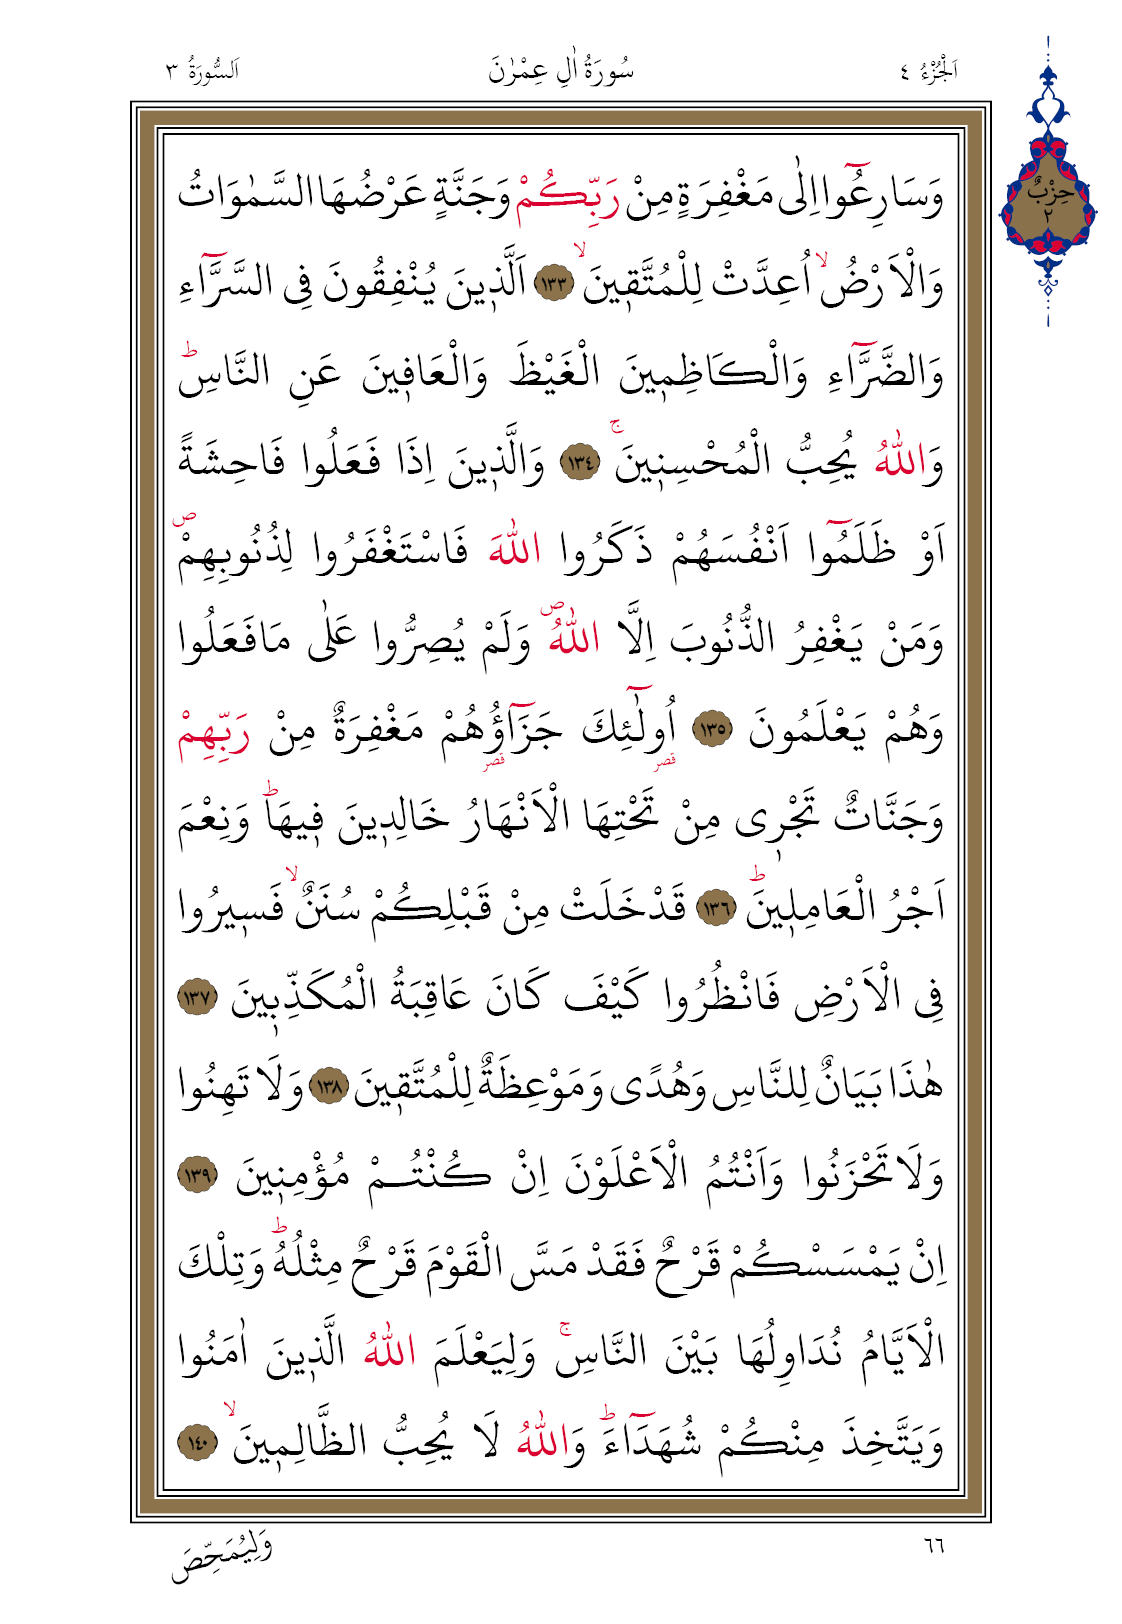 اَلْجُزْءُ ٤
سُورَةُ اٰلِ عِمْرٰنَ
اَلسُّورَةُ ٣
حِزْبٌ
٢
وَسَارِعُٓوا اِلٰى مَغْفِرَةٍ مِنْ رَبِّكُمْ وَجَنَّةٍ عَرْضُهَا السَّمٰوَاتُ
وَالْاَرْضُۙ اُعِدَّتْ لِلْمُتَّق۪ينَۙ ﴿١٣٣﴾ اَلَّذ۪ينَ يُنْفِقُونَ فِي السَّرَّٓاءِ
وَالضَّرَّٓاءِ وَالْكَاظِم۪ينَ الْغَيْظَ وَالْعَاف۪ينَ عَنِ النَّاسِۜ
وَاللّٰهُ يُحِبُّ الْمُحْسِن۪ينَۚ ﴿١٣٤﴾ وَالَّذ۪ينَ اِذَا فَعَلُوا فَاحِشَةً
اَوْ ظَلَمُٓوا اَنْفُسَهُمْ ذَكَرُوا اللّٰهَ فَاسْتَغْفَرُوا لِذُنُوبِهِمْۖ
وَمَنْ يَغْفِرُ الذُّنُوبَ اِلَّا اللّٰهُۖ وَلَمْ يُصِرُّوا عَلٰى مَا فَعَلُوا
وَهُمْ يَعْلَمُونَ ﴿١٣٥﴾ اُو۬لٰٓئِكَ جَزَٓاؤُ۬هُمْ مَغْفِرَةٌ مِنْ رَبِّهِمْ
وَجَنَّاتٌ تَجْر۪ي مِنْ تَحْتِهَا الْاَنْهَارُ خَالِد۪ينَ ف۪يهَاۜ وَنِعْمَ
اَجْرُ الْعَامِل۪ينَۜ ﴿١٣٦﴾ قَدْ خَلَتْ مِنْ قَبْلِكُمْ سُنَنٌۙ فَس۪يرُوا
فِي الْاَرْضِ فَانْظُرُوا كَيْفَ كَانَ عَاقِبَةُ الْمُكَذِّب۪ينَ ﴿١٣٧﴾
هٰذَا بَيَانٌ لِلنَّاسِ وَهُدًى وَمَوْعِظَةٌ لِلْمُتَّق۪ينَ ﴿١٣٨﴾ وَلَا تَهِنُوا
وَلَا تَحْزَنُوا وَاَنْتُمُ الْاَعْلَوْنَ اِنْ كُنْتُمْ مُؤْمِن۪ينَ ﴿١٣٩﴾
اِنْ يَمْسَسْكُمْ قَرْحٌ فَقَدْ مَسَّ الْقَوْمَ قَرْحٌ مِثْلُهُۜ وَتِلْكَ
الْاَيَّامُ نُدَاوِلُهَا بَيْنَ النَّاسِۚ وَلِيَعْلَمَ اللّٰهُ الَّذ۪ينَ اٰمَنُوا
وَيَتَّخِذَ مِنْكُمْ شُهَدَٓاءَۜ وَاللّٰهُ لَا يُحِبُّ الظَّالِم۪ينَۙ ﴿١٤٠﴾
٦٦
وَلِيُمَحِّصَ